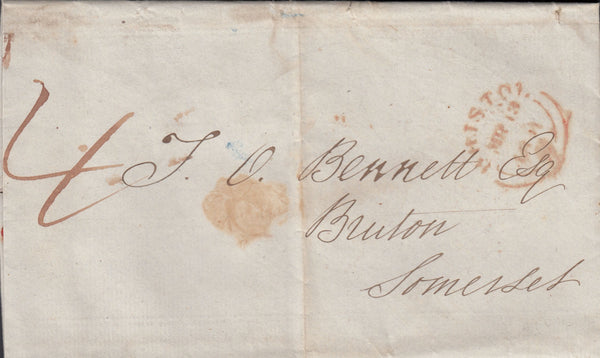 4
T. O. Bennett Esq
Bruton
Somerset
BRISTOL